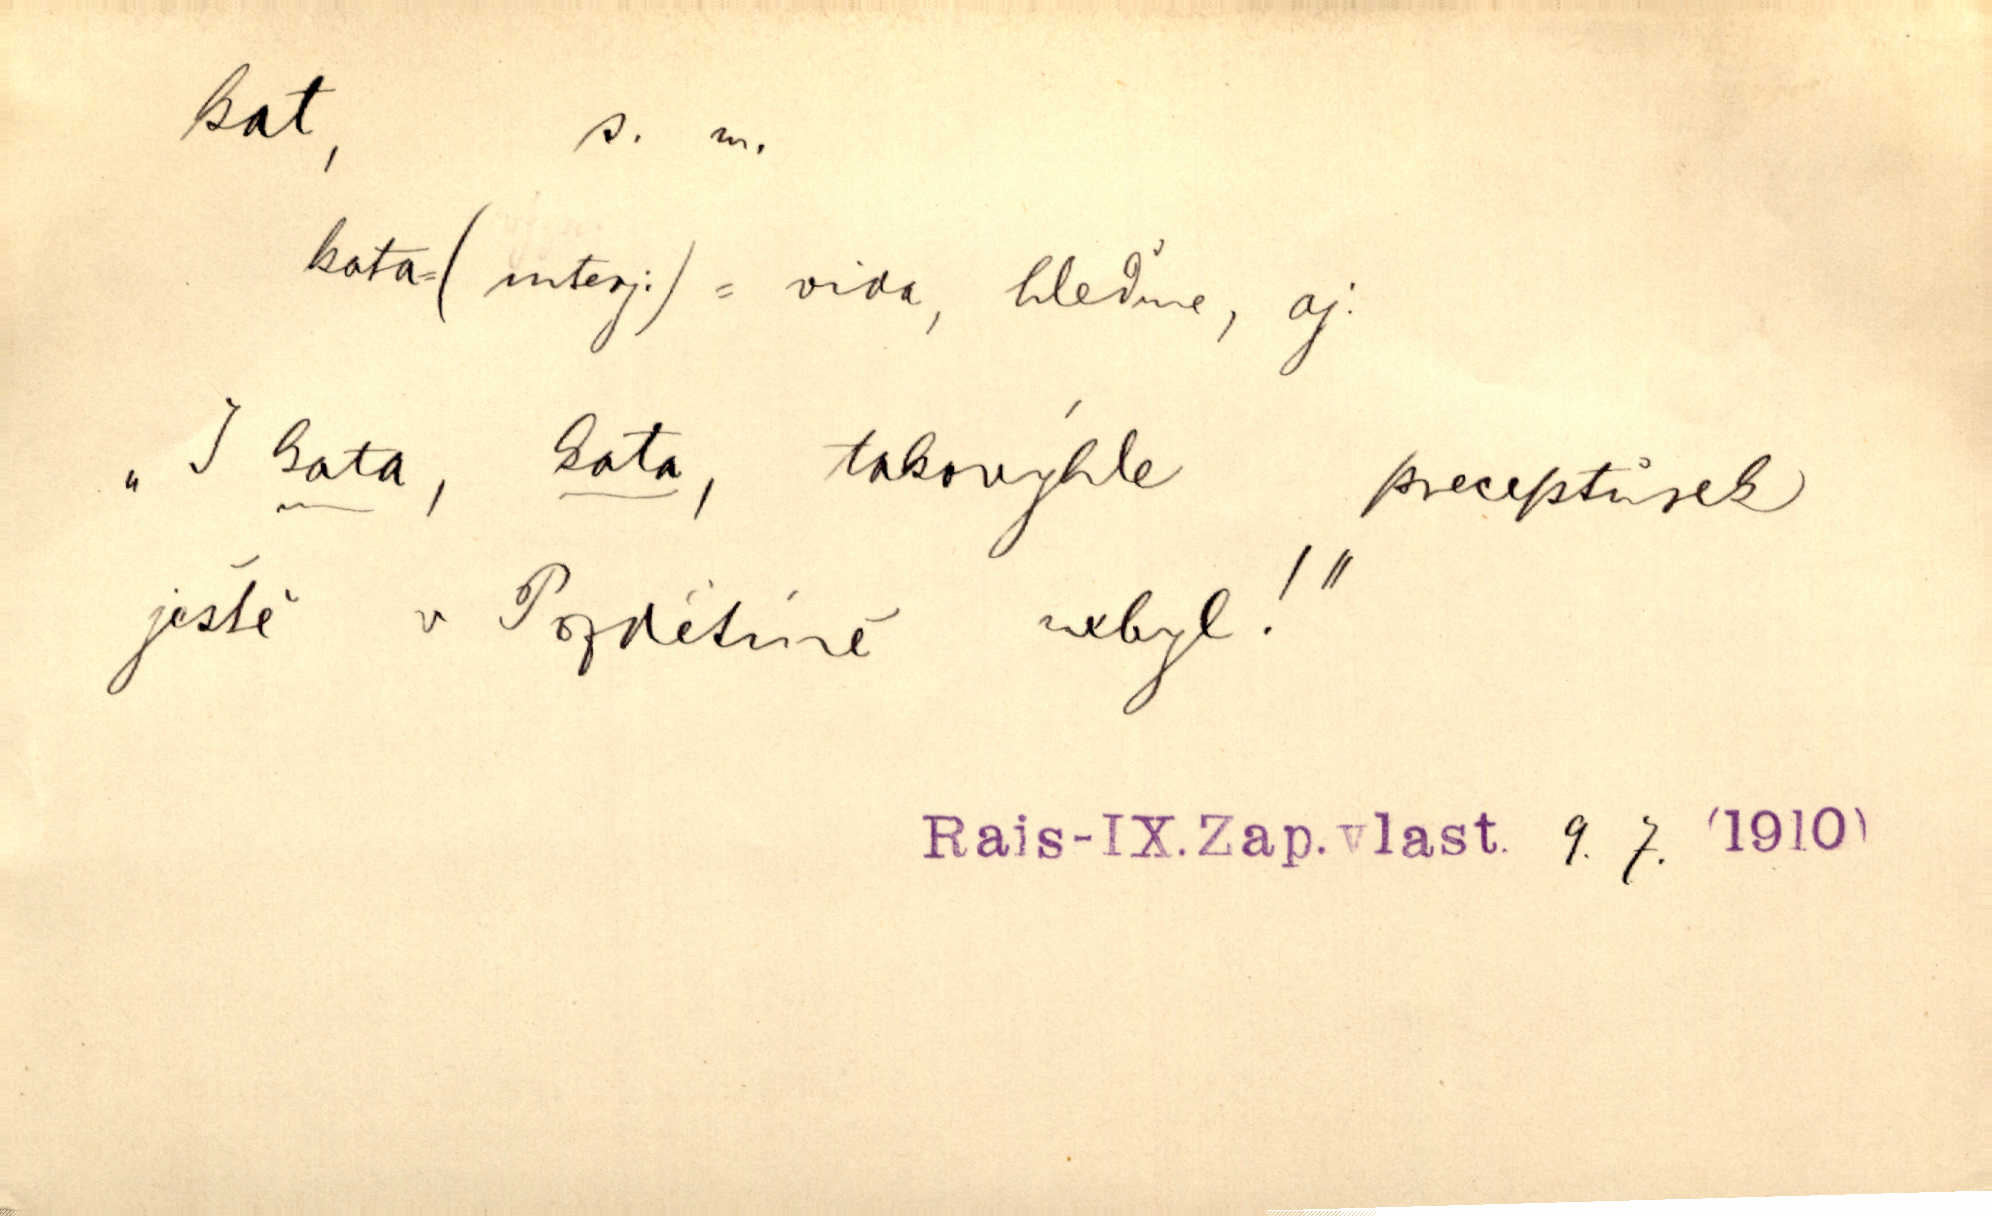 kat, s. m.
kata=(interj.) = vida, hleďme, aj:
„I kata, kata, takovýhle preceptůrek
ještě v Pozdětíně nebyl!"
Rais-IX.Zap.vlast. 9. 7. (1910)